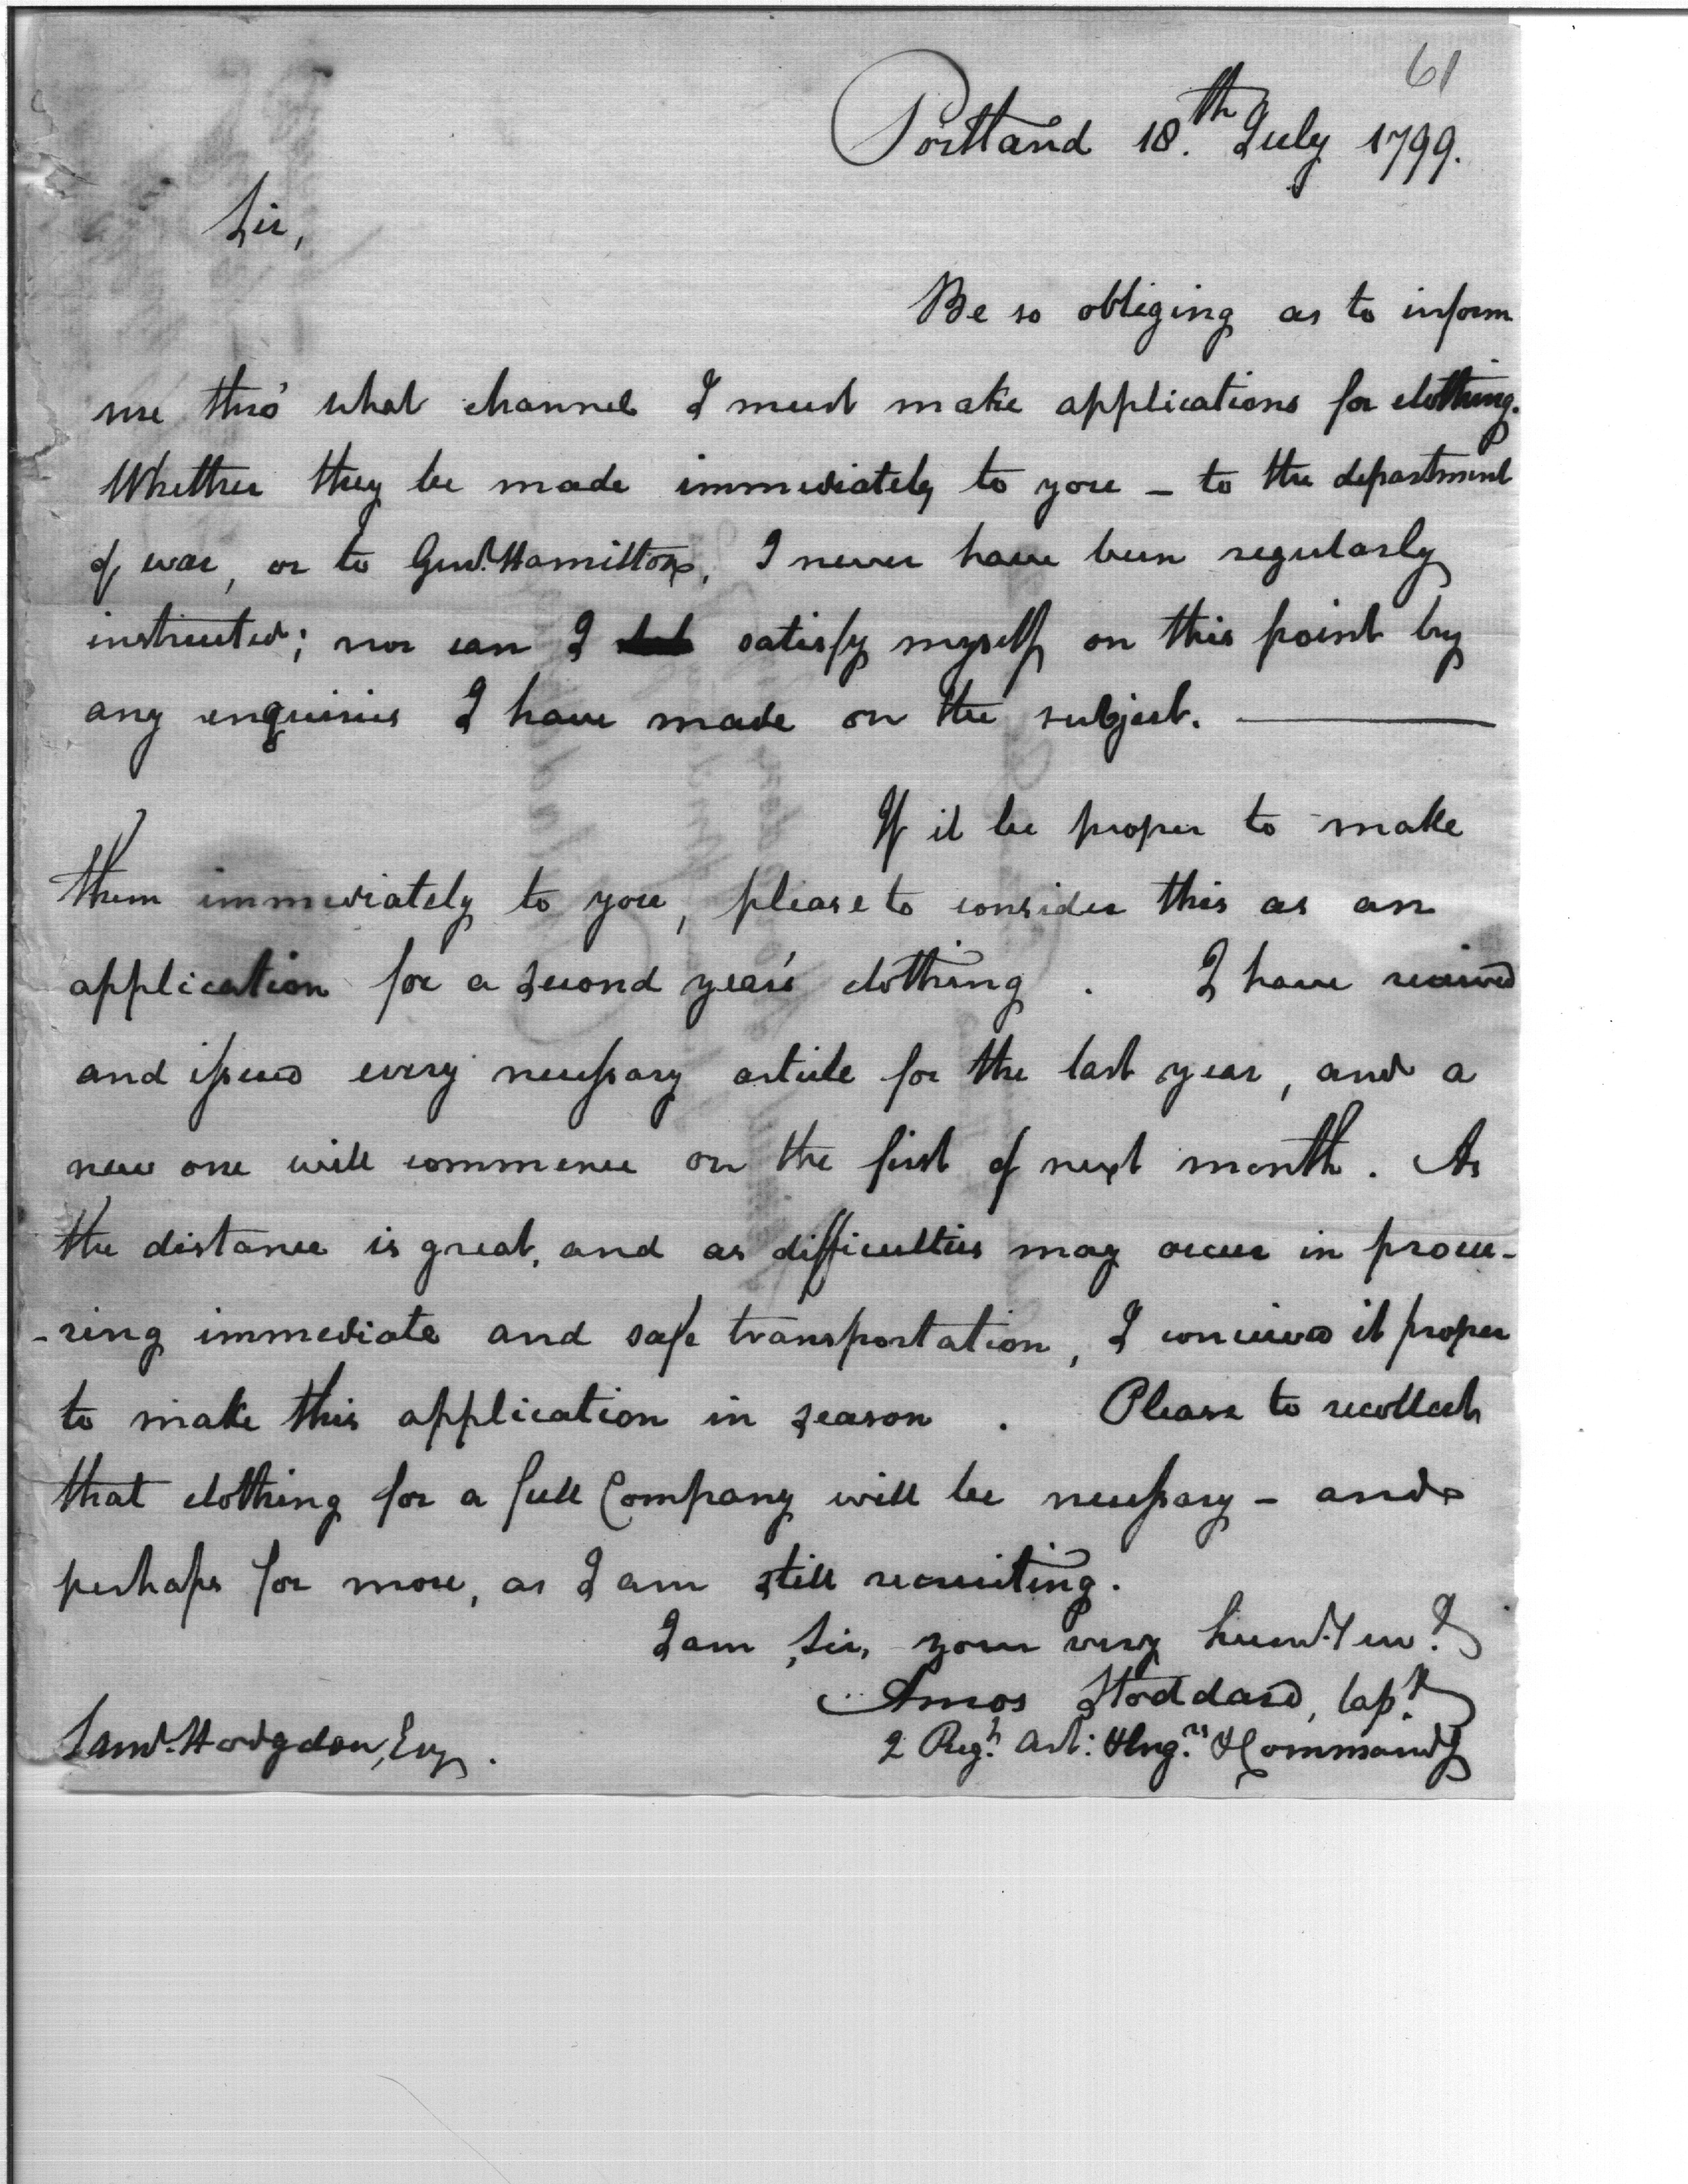 61
Portland 18.th July 1799.
Sir,
Be so obliging as to inform
me thro' what channel I must make applications for clothing.
Whether they be made immediately to you - to the department
of war, or to Genl. Hamilton, I never have been regularly
instructed; nor can I satisfy myself on this point by
any enquiries I have made on the subject.
If it be proper to make
them immediately to you, please to consider this as an
application for a second year's clothing. I have received
and issued every necessary article for the last year, and a
new one will commence on the first of next month. As
the distance is great, and as difficulties may occur in procu-
-ring immediate and safe transportation, I conceived it proper
to make this application in season. Please to recollect
that clothing for a full Company will be necessary - and
perhaps for more, as I am still recruiting.
I am, Sir, your very huml. Serv.t
Amos Stoddard, Capt.
2 Reg.t Art: & Eng.rs & Command.g
Saml. Hodgdon, Esq.